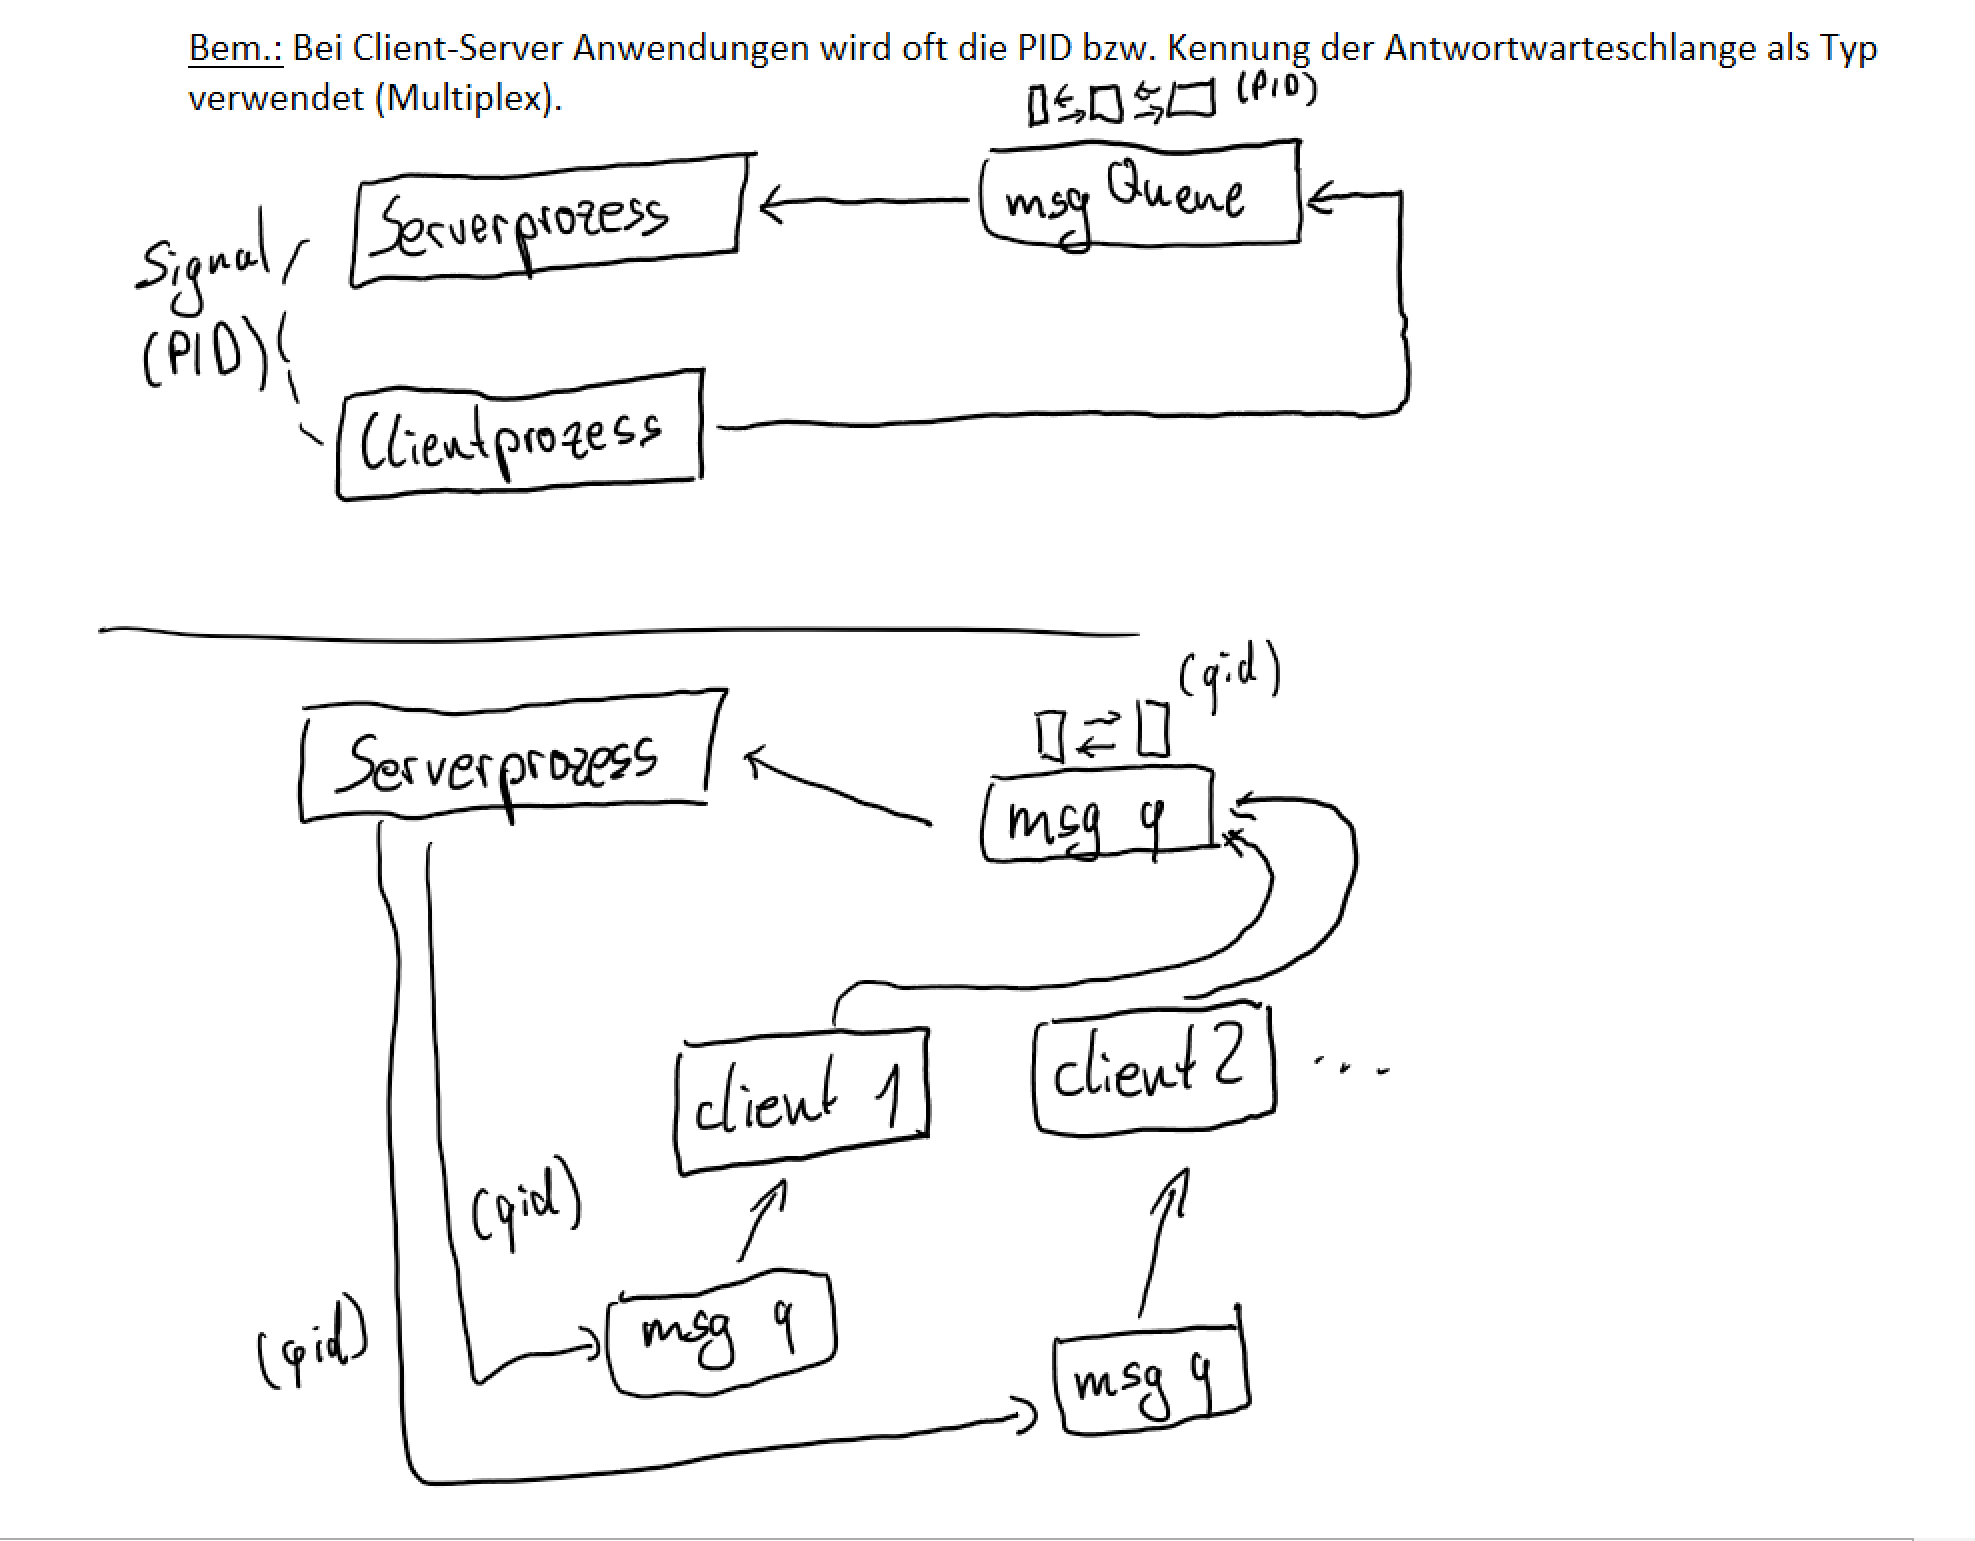 Bem.: Bei Client-Server Anwendungen wird oft die PID bzw. Kennung der Antwortwarteschlange als Typ
verwendet (Multiplex).
(PID)
Serverprozess
msg Queue
Signal
(PID)
Clientprozess
(qid)
Serverprozess
msg q
client 1
client 2
...
(qid)
(qid)
msg q
msg q